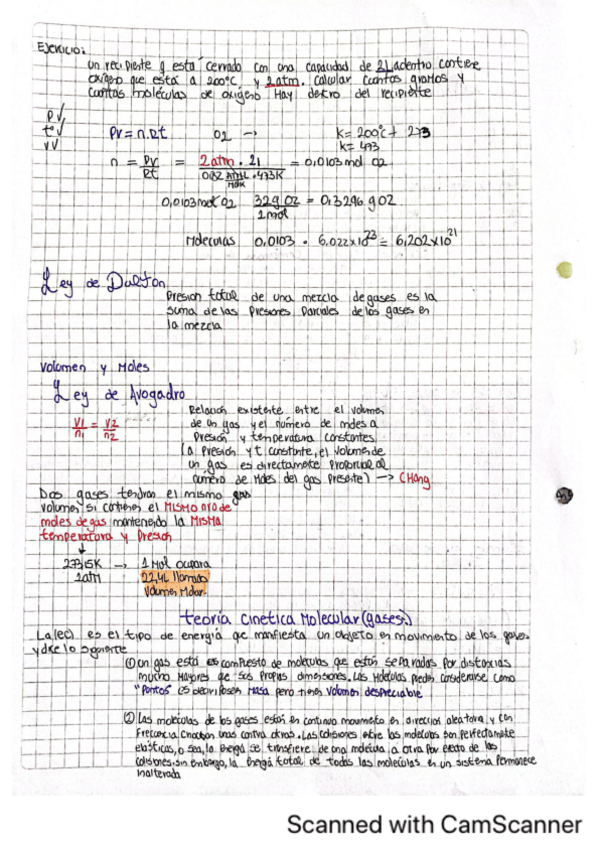 Ejercicio:
un recipiente q está cerrado con una capacidad de 2L adentro contiene
oxígeno que está a 200°C y 2 atm. calcular cuantos gramos y
cuantas moléculas de oxígeno Hay dentro del recipiente
P✓
t✓
V✓
PV = n.Rt O2 → K= 200°C + 273
K= 473
n = PV = 2 atm . 2l = 0,0103 mol O2
Rt 0.082 atm.L . 473K
mol K
0,0103 mol O2 32g O2 = 0,3296 g O2
1 mol
Moleculas 0,0103 . 6.022x10^23 = 6,202x10^21
Ley de Dalton
Presion total de una mezcla de gases es la
suma de las Presiones Parciales de los gases en
la mezcla
Volumen y Moles
Ley de Avogadro
V1 = V2
n1 n2
Relacion existente entre el volumen
de un gas y el número de moles a
Presión y temperatura constantes
(a Presion y t constante, el volumen de
un gas es directamente Proporcional al
numero de Moles del gas Presente) → CHang
Dos gases tendran el mismo
volumen si contienen el MISMO nro de
moles de gas manteniendo la MISMA
temperatura y Presion
↓
273,15K → 1 Mol ocupara
1atm 22,4L llamado
Volumen Molar.
teoría cinetica Molecular (gases)
La (ec) es el tipo de energía qe manifiesta un objeto en movimento de los gases
y dice lo siguiente
① un gas está compuesto de moleculas que están separadas Por distancias
mucho Mayores que sus Propias dimensiones. Las Moleculas pueden considerarse como
"Puntos" es decir poseen Masa pero tienen Volumen despreciable
② Las moleculas de los gases están en continuo movimento en direccion aleatora, y con
Frecuencia chocan unas contra otras. Las colisiones entre las moleculas son Perfectamente
elásticas, o sea, la Energía se transfiere de una molecula a otra Por efecto de las
colisiones. sin embargo, la Energía total de todas las moleculas en un sistema Permanece
inalterada
Scanned with CamScanner